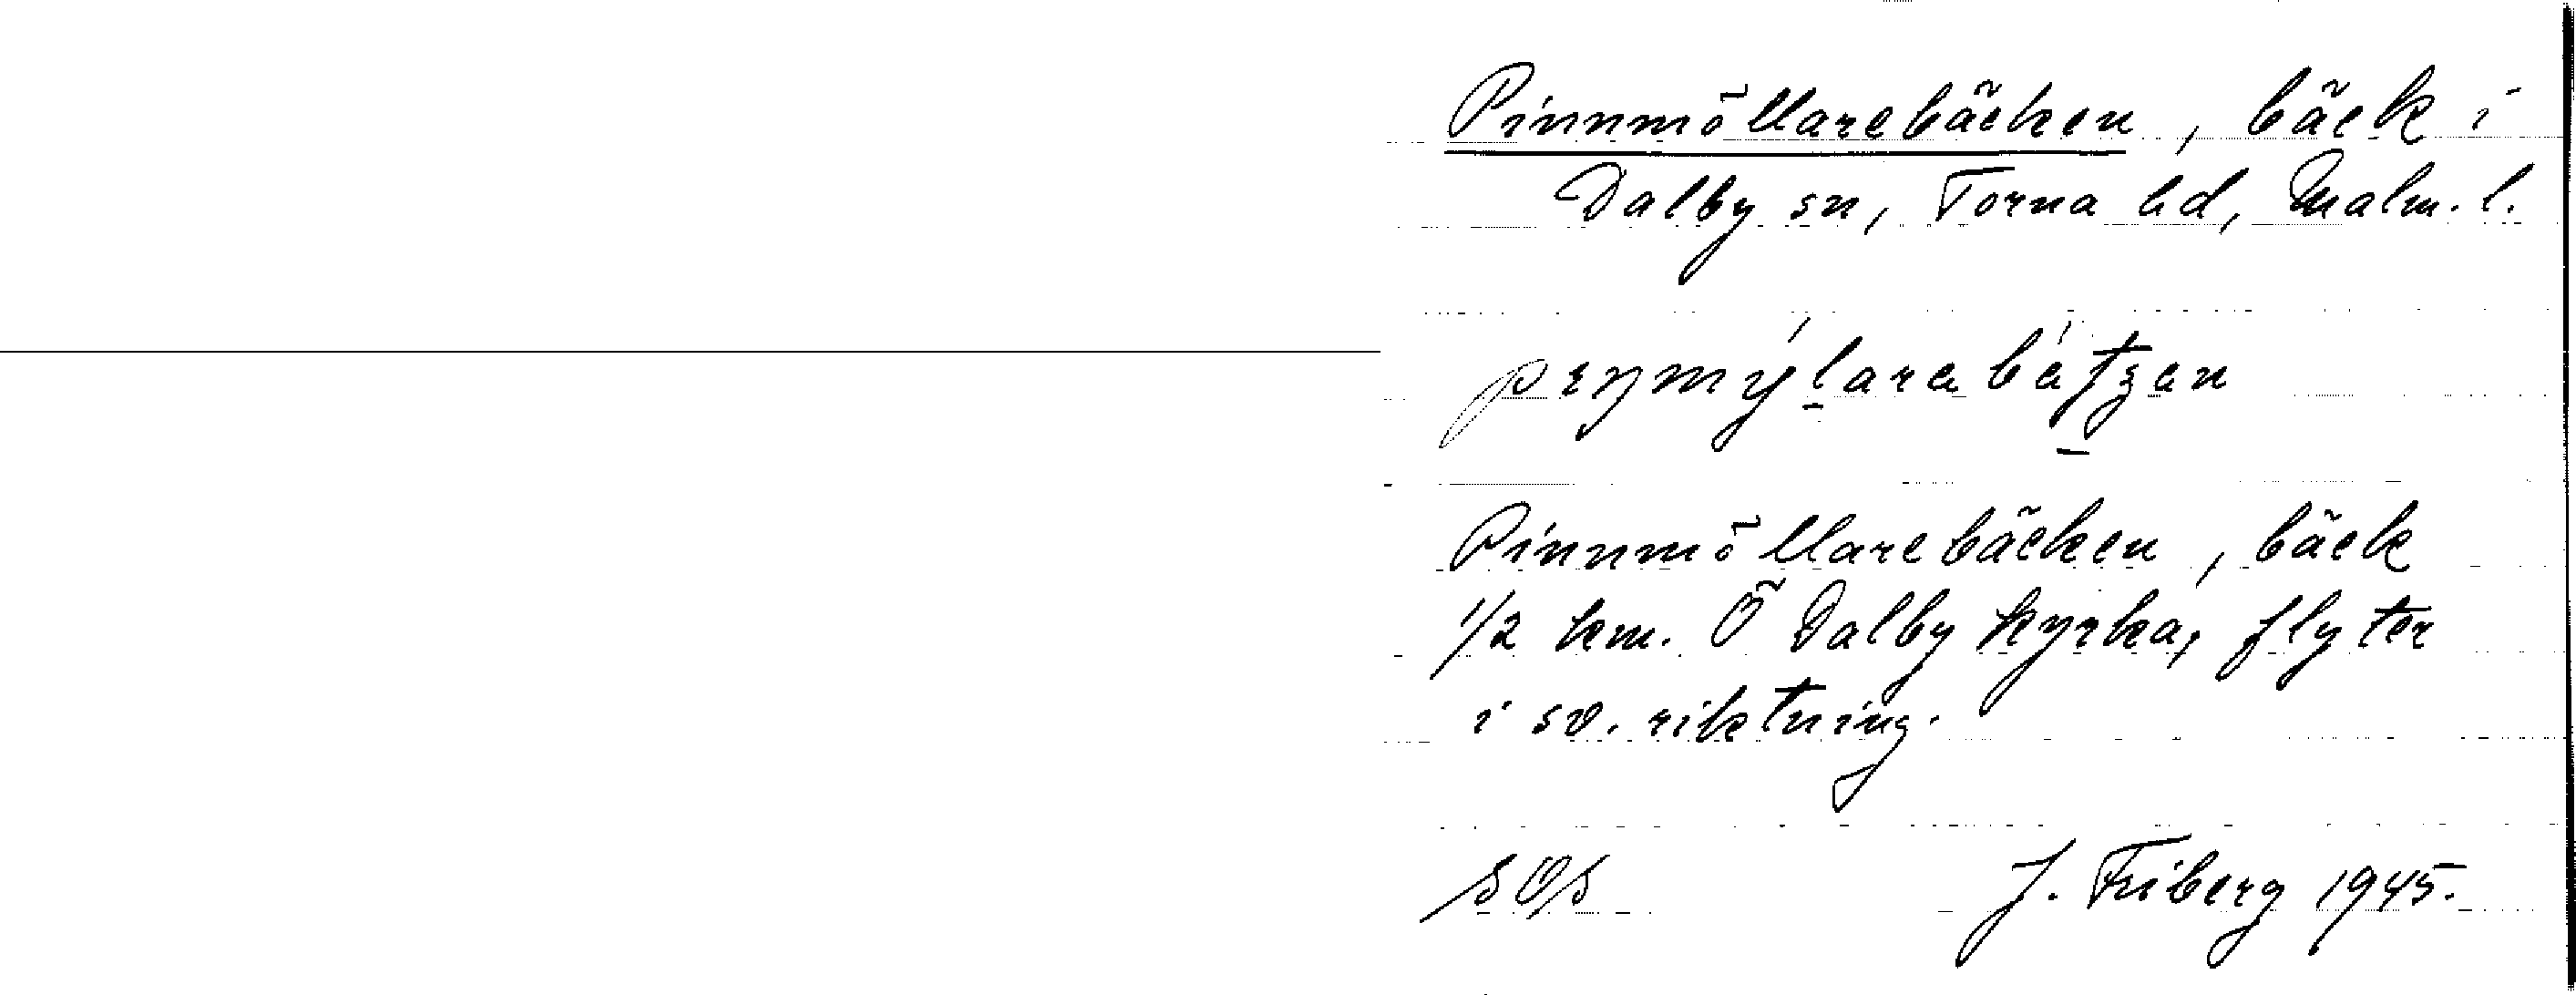 Pinnmöllarebäcken, bäck i
Dalby sn, Torna hd, Malm. l.
Pinnmöllarebäcken, bäck
1/2 km. Ö Dalby kyrka, flyter
i sv. riktning.
J. Friberg 1945.